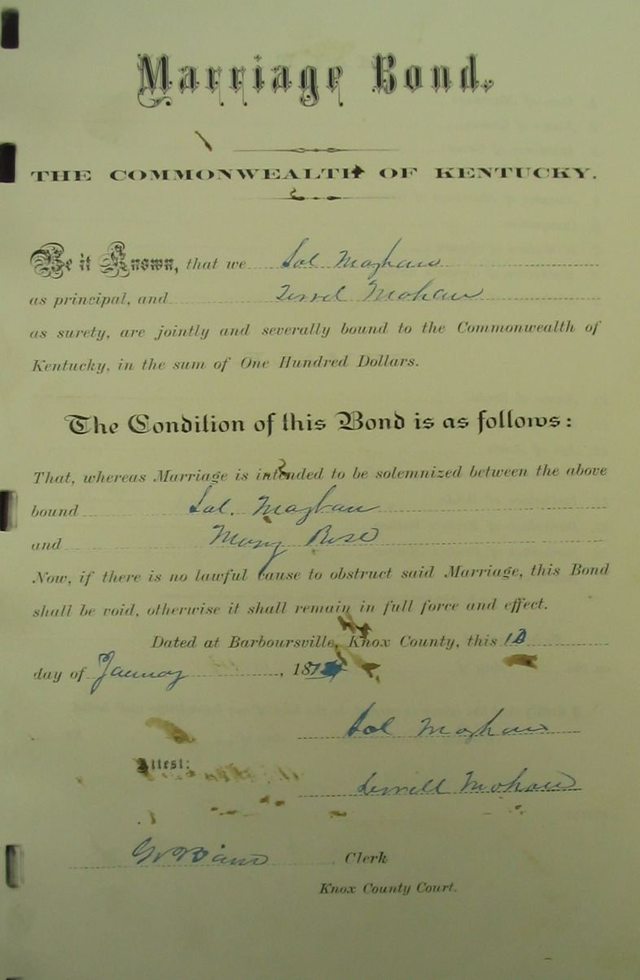 Marriage Bond.
THE COMMONWEALTH OF KENTUCKY.
Be it Known, that we Sol Maghan
as principal, and Terrel Mohan
as surety, are jointly and severally bound to the Commonwealth of
Kentucky, in the sum of One Hundred Dollars.
The Condition of this Bond is as follows:
That, whereas Marriage is intended to be solemnized between the above
bound Sol. Maghan
and Mary Rose
Now, if there is no lawful cause to obstruct said Marriage, this Bond
shall be void, otherwise it shall remain in full force and effect.
Dated at Barboursville, Knox County, this
day of January, 187
Sol Maghan
Attest:
Terrell Mohan
Clerk
Knox County Court.